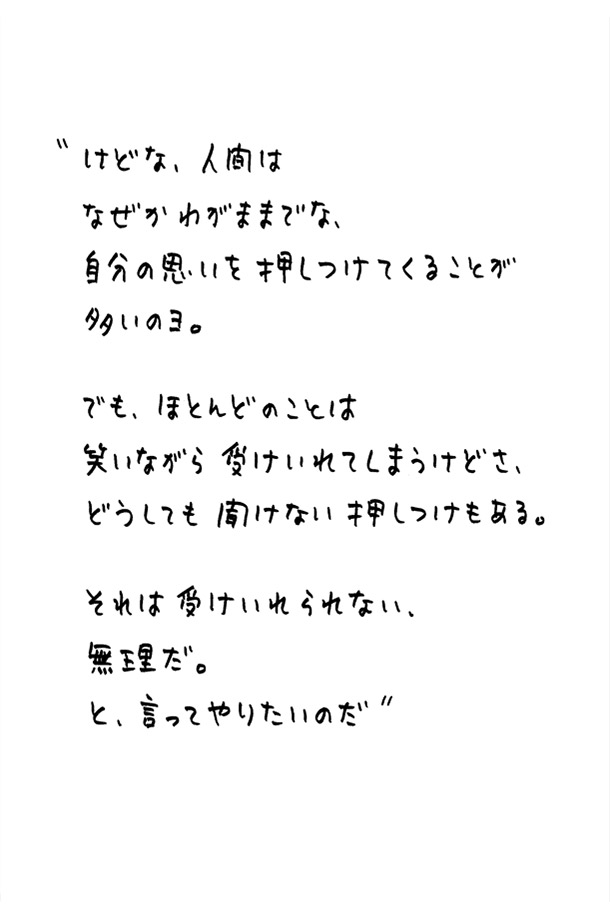 〝けどな、人間は
なぜかわがままでな、
自分の思いを押しつけてくることが
多いのヨ。
でも、ほとんどのことは
笑いながら受けいれてしまうけどさ、
どうしても聞けない押しつけもある。
それは受けいれられない、
無理だ。
と、言ってやりたいのだ〟